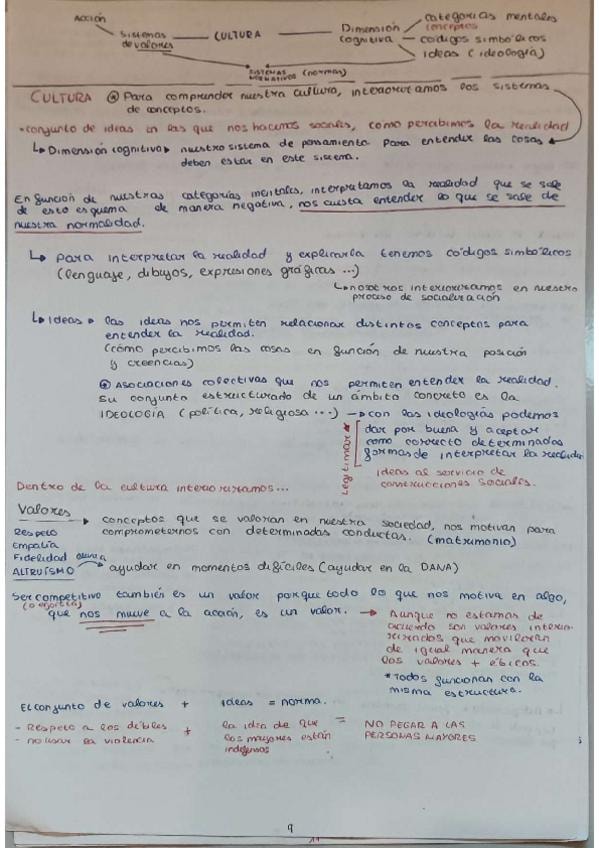 ACCIÓN
Sistemas de valores — CULTURA — Dimensión cognitiva
categorías mentales
conceptos
códigos simbólicos
ideas (ideología)
SISTEMAS NORMATIVOS (normas)
CULTURA ⊛ Para comprender nuestra cultura, interiorizamos los sistemas
de conceptos.
*conjunto de ideas en las que nos hacemos sociales, como percibimos la realidad
↳ Dimensión cognitiva ▸ nuestro sistema de pensamiento para entender las cosas
deben estar en este sistema.
En función de nuestras categorías mentales, interpretamos la realidad que se sale
de esto esquema de manera negativa, nos cuesta entender lo que se sale de
nuestra normalidad.
↳ Para interpretar la realidad y explicarla tenemos códigos simbólicos
(lenguaje, dibujos, expresiones gráficas ...)
↳ nosotros interiorizamos en nuestro
proceso de socialización
↳ Ideas ▸ las ideas nos permiten relacionar distintos conceptos para
entender la realidad.
(cómo percibimos las cosas en función de nuestra posición
y creencias)
⊛ Asociaciones colectivas que nos permiten entender la realidad.
Su conjunto estructurado de un ámbito concreto es la
IDEOLOGÍA (política, religiosa ...) → con las ideologías podemos
dar por buena y aceptar
como correcto determinadas
formas de interpretar la realidad
Legitimar
ideas al servicio de
construcciones sociales.
Dentro de la cultura interiorizamos...
Valores → conceptos que se valoran en nuestra sociedad, nos motivan para
comprometernos con determinadas conductas. (matrimonio)
Respeto
Empatía
Fidelidad
ALTRUÍSMO → ayudar en momentos difíciles (ayudar en la DANA)
Ser competitivo también es un valor porque todo lo que nos motiva en algo,
(o egoísta)
que nos mueve a la acción, es un valor. → Aunque no estamos de
acuerdo son valores interio-
rizados que movilizan
de igual manera que
los valores + éticos.
*Todos funcionan con la
misma estructura.
El conjunto de valores + ideas = norma.
- Respeto a los débiles + la idea de que = NO PEGAR A LAS
- no usar la violencia los mayores están PERSONAS MAYORES
indefensos
9